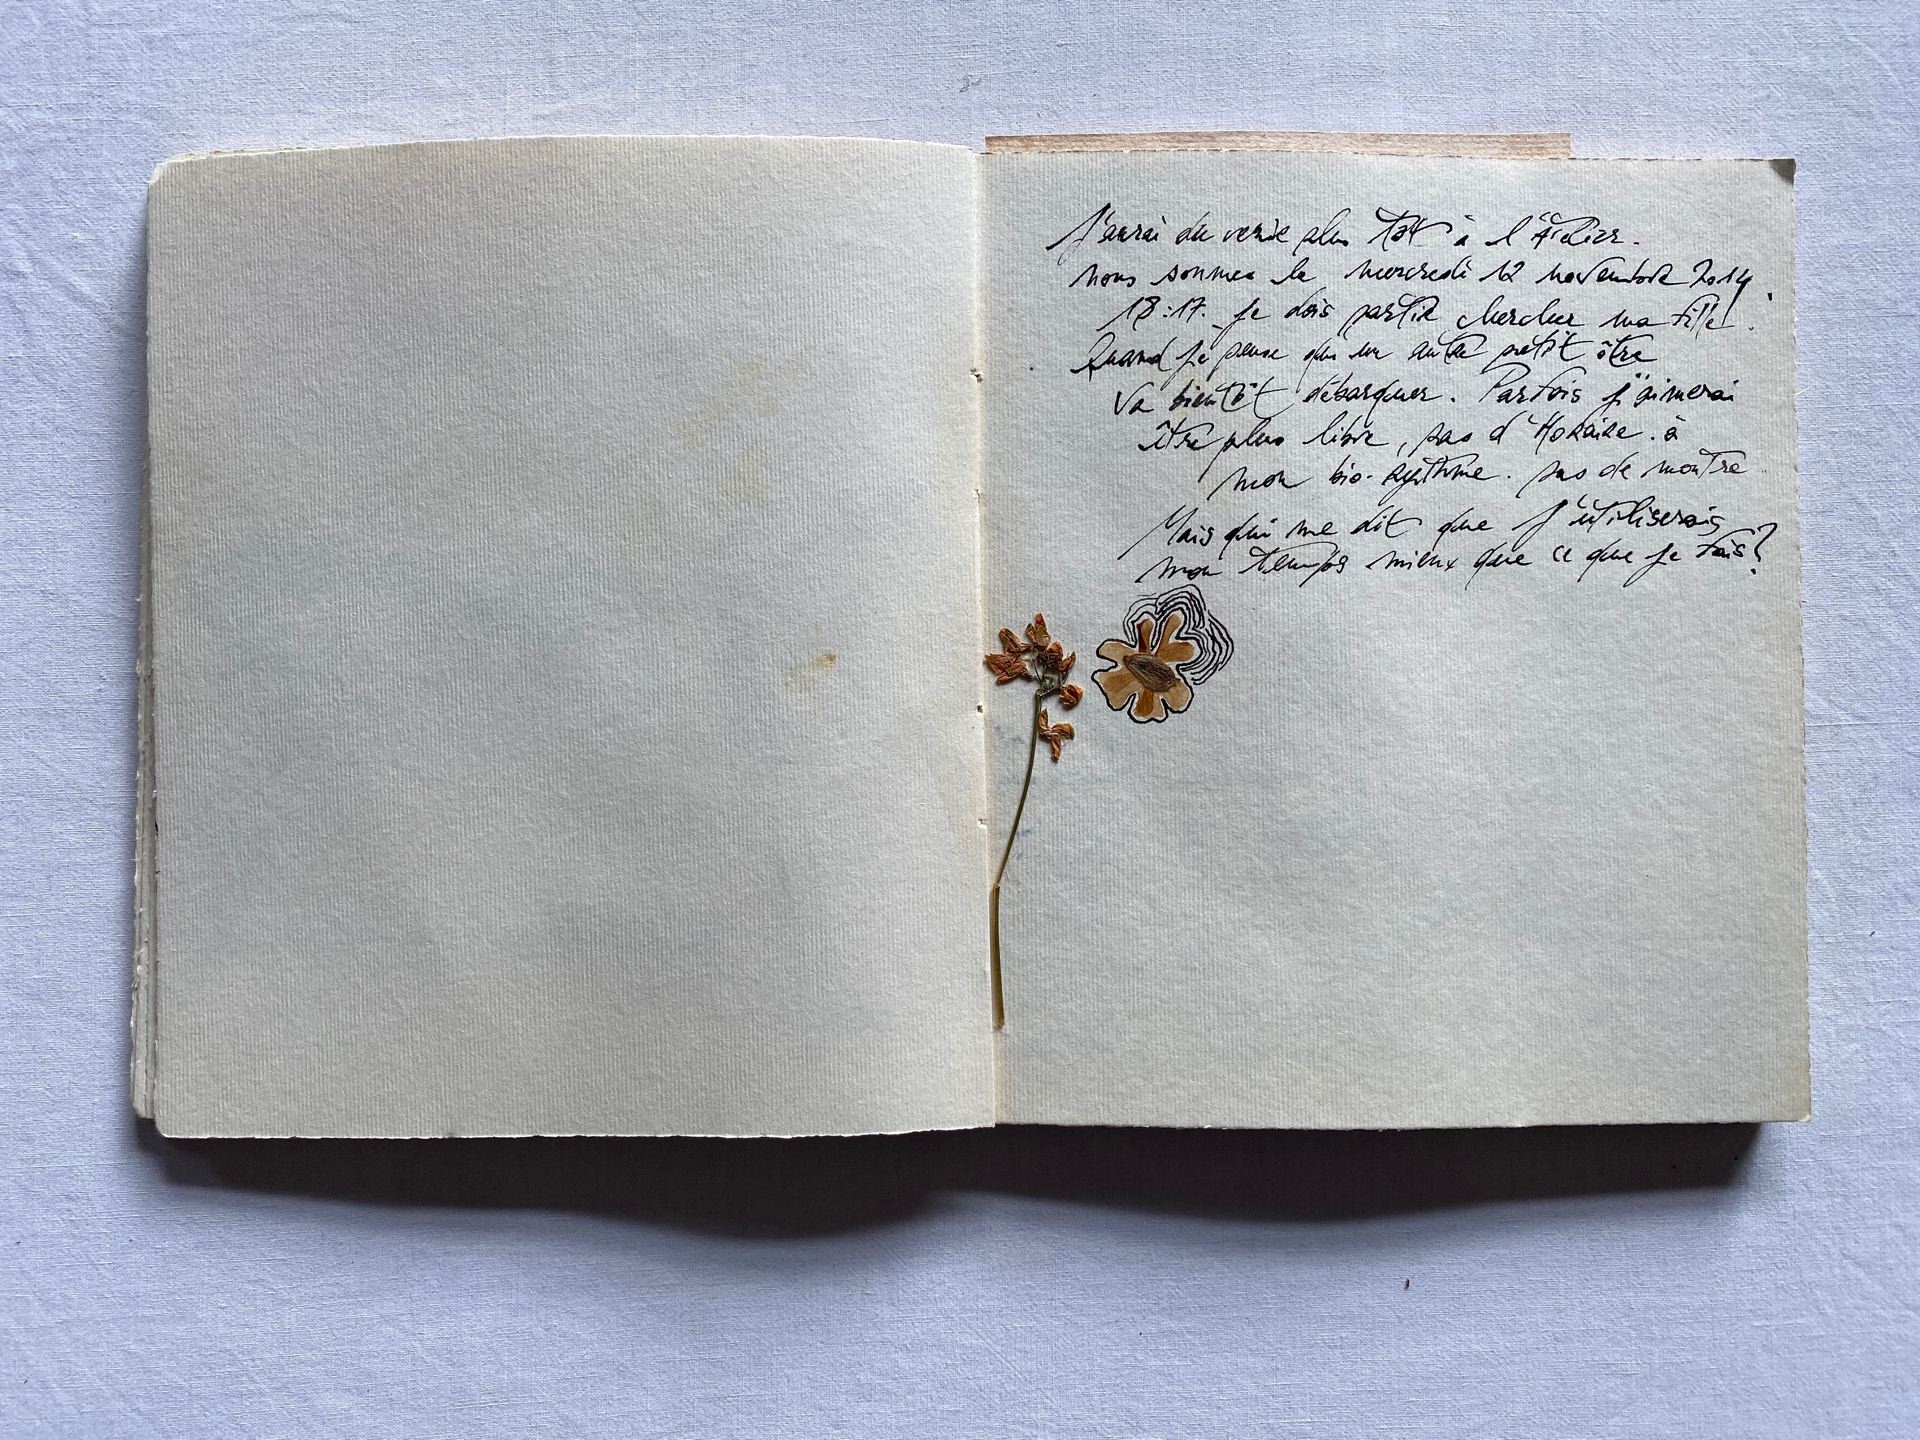 J'aurai du venir plus tôt à l'Atelier.
nous sommes le mercredi 12 novembre 2014.
18:17. je dois partir chercher ma fille.
Quand je pense qu'un autre petit être
va bientôt débarquer. Parfois j'aimerai
être plus libre, pas d'Horaire. à
mon bio-rythme. pas de montre
Mais qui me dit que j'utiliserais
mon temps mieux que ce que je fais?